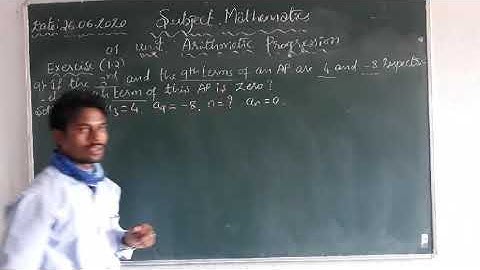 Date: 26.06.2020 Subject Mathematics
01 unit Arithmetic Progression
Exercise (1.2)
If the 3rd and the 9th terms of an AP are 4 and -8 respect-
term of this AP is zero?
a₃=4, a₉=-8, n=? aₙ=0.